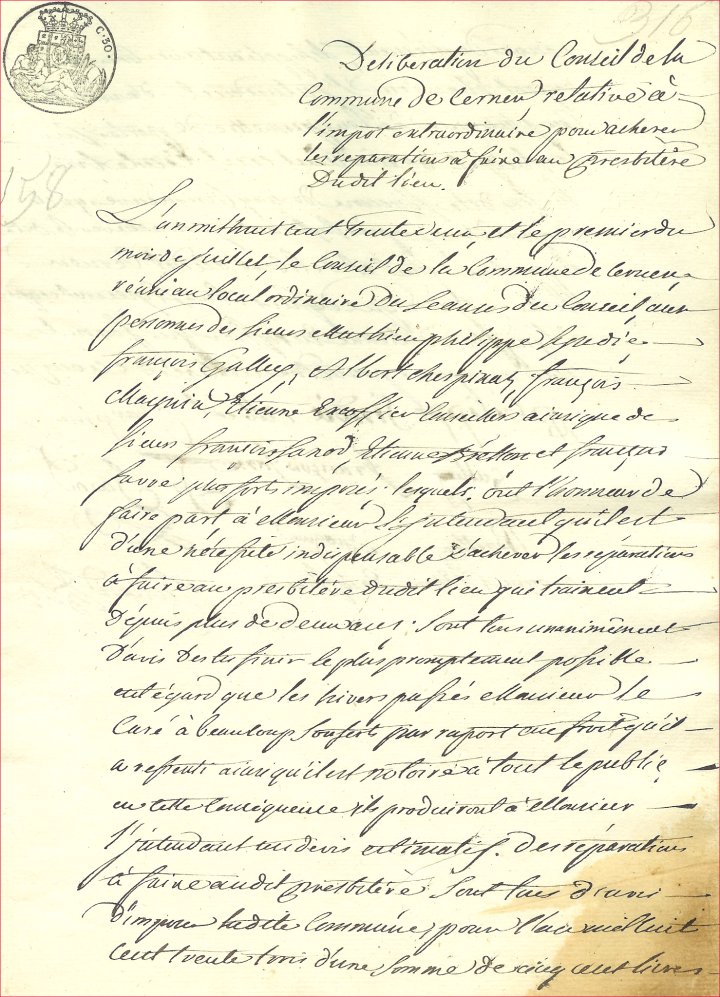 C.50.
316
158
Deliberation du Conseil de la
Commune de Cerneu relative à
l'impot extraordinaire pour achever
les reparations à faire au Presbitère
Dudit lieu.
L'an mil huit cent trente deux et le premier du
mois de Juillet, le Conseil de la Commune de Cerneu,
réuni au local ordinaire du Seances du Conseil aux
personnes des sieurs Mathieu philippe Syndic
françois Galley, Albert chespinat, françois
Maquia, Etienne Excoffier Conseillers ainsi que de
sieurs françois Sanod Etienne et françois
favre plus forts imposés. lesquels, ont l'honneur de
faire part à Monsieur L'jntendant qu'il est
d'une nécessité indispensable d'achever les réparations
à faire au presbitère dudit lieu qui trainent
Dépuis plus de deux ans. Sont tous unanimément
D'avis de les finir le plus promptement possible
eut égard que les hivers passés Monsieur le
Curé à beaucoup soufert par raport au froit qu'il
a ressenti ainsi qu'il est notoire à tout le public,
en cette Conséquense ils produiront à Monsieur
l'jntendant un devis estimatif. des réparations
à faire audit Presbitère Sont tous d'avis
d'imposer ladite Commune, pour l'an mil huit
cent trente trois d'une somme de cinq cent livres